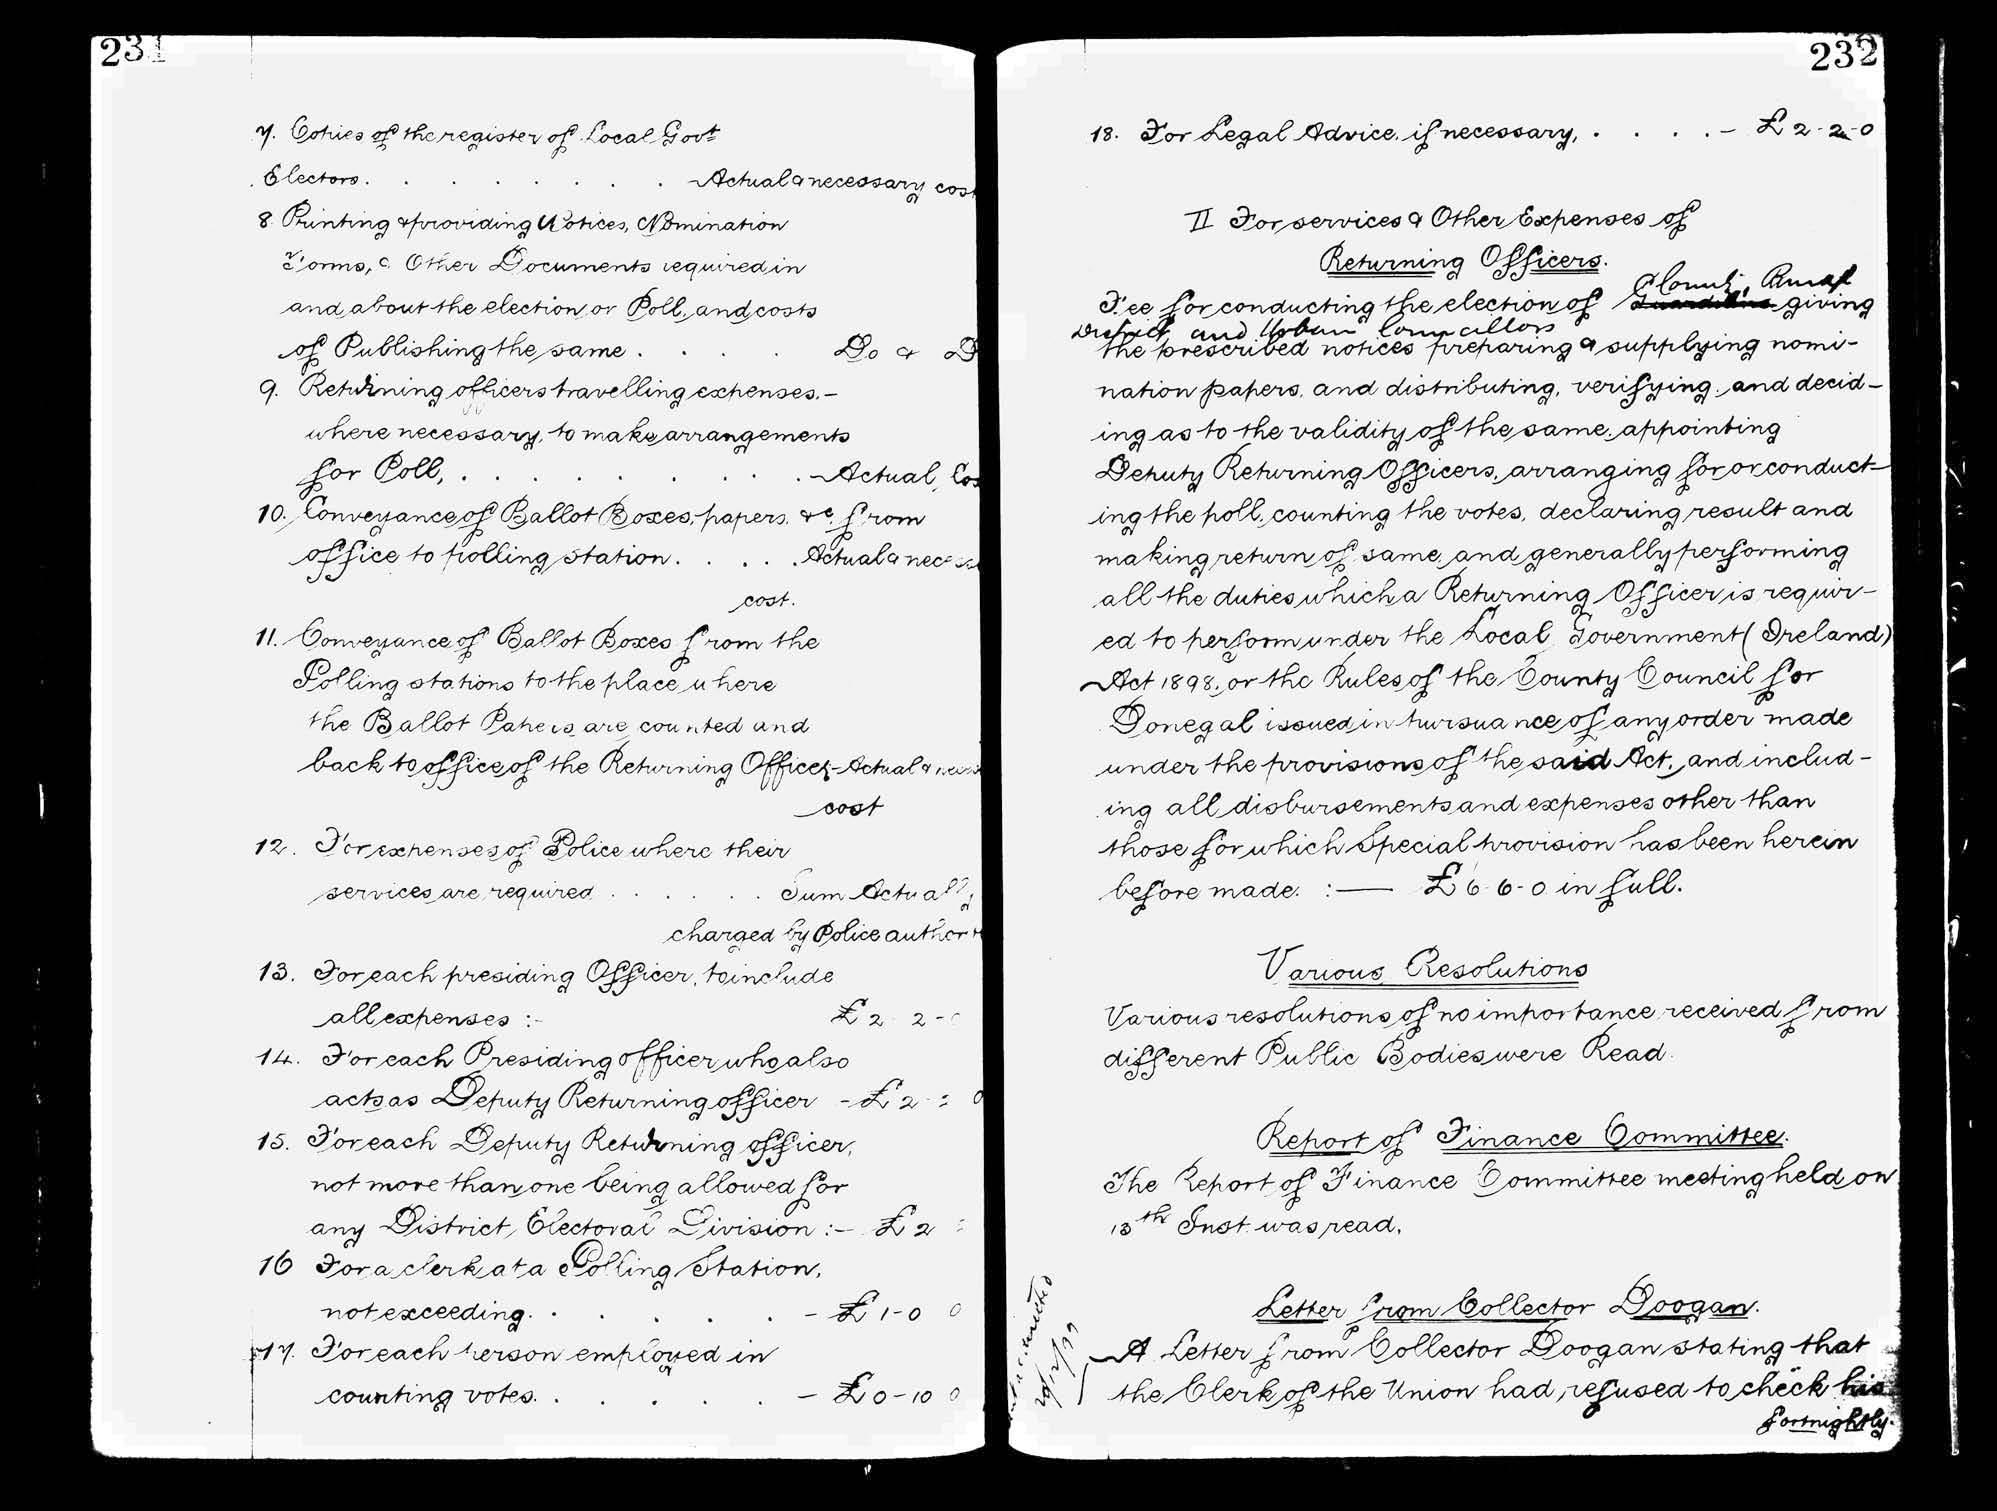 231
7. Copies of the register of Local Govt
Electors. . . . . . . . Actual & necessary cost
8. Printing & providing Notices, Nomination
Forms, & Other Documents required in
and about the election or Poll, and costs
of Publishing the same . . . . Do & D
9. Returning officers travelling expenses, -
where necessary, to make arrangements
for Poll, . . . . . . . . Actual, Cos
10. Conveyance of Ballot Boxes, papers, &c. from
office to polling station . . . . . Actual & necess
cost.
11. Conveyance of Ballot Boxes from the
Polling stations to the place where
the Ballot Papers are counted and
back to office of the Returning Officer - Actual &
cost
12. For expenses of Police where their
services are required . . . . . . Sum Actually
charged by Police author
13. For each presiding Officer, to include
all expenses :- £2 - 2 - 0
14. For each Presiding officer who also
acts as Deputy Returning officer - £2 - 2 0
15. For each Deputy Returning officer,
not more than one being allowed for
any District Electoral Division :- £2
16 For a clerk at a Polling Station,
not exceeding . . . . . - £1-0 0
17. For each person employed in
counting votes. . . . . - £0-10 0
232
18. For Legal Advice, if necessary, . . . . - £2-2-0
II For services & Other Expenses of
Returning Officers.
County, Rural
Fee for conducting the election of Guardians giving
District and Urban Councillors
the prescribed notices preparing & supplying nomi-
nation papers, and distributing, verifying, and decid-
ing as to the validity of the same, appointing
Deputy Returning Officers, arranging for or conduct-
ing the poll, counting the votes, declaring result and
making return of same, and generally performing
all the duties which a Returning Officer is requir-
ed to perform under the Local Government (Ireland)
Act 1898, or the Rules of the County Council for
Donegal issued in pursuance of any order made
under the provisions of the said Act, and includ-
ing all disbursements and expenses other than
those for which Special provision has been herein
before made. :— £6-6-0 in full.
Various Resolutions
Various resolutions of no importance received from
different Public Bodies were Read.
Report of Finance Committee.
The Report of Finance Committee meeting held on
13th Inst. was read.
Letter from Collector Doogan.
A Letter from Collector Doogan stating that
the Clerk of the Union had refused to check his
fortnightly.